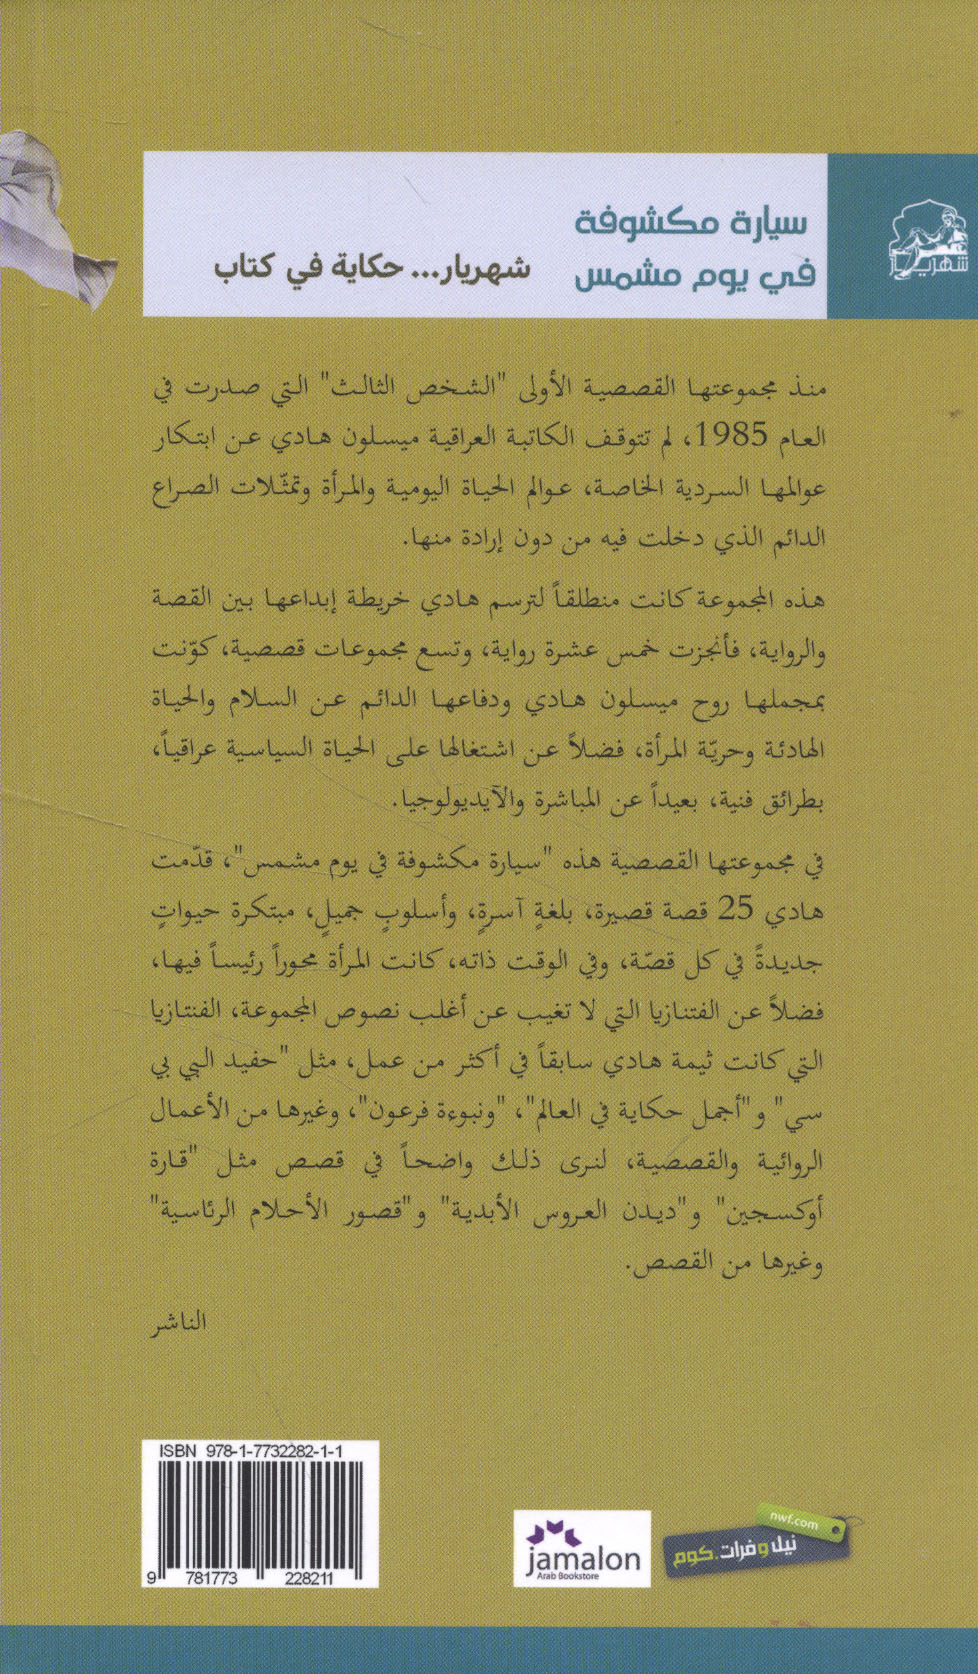 شهريار
سيارة مكشوفة
في يوم مشمس
شهريار... حكاية في كتاب
منذ مجموعتها القصصية الأولى "الشخص الثالث" التي صدرت في
العام 1985، لم تتوقف الكاتبة العراقية ميسلون هادي عن ابتكار
عوالمها السردية الخاصة، عوالم الحياة اليومية والمرأة وتمثّلات الصراع
الدائم الذي دخلت فيه من دون إرادة منها.
هذه المجموعة كانت منطلقاً لترسم هادي خريطة إبداعها بين القصة
والرواية، فأنجزت خمس عشرة رواية، وتسع مجموعات قصصية، كوّنت
بمجملها روح ميسلون هادي ودفاعها الدائم عن السلام والحياة
الهادئة وحريّة المرأة، فضلاً عن اشتغالها على الحياة السياسية عراقياً،
بطرائق فنية، بعيداً عن المباشرة والآيديولوجيا.
في مجموعتها القصصية هذه "سيارة مكشوفة في يوم مشمس"، قدّمت
هادي 25 قصة قصيرة، بلغةٍ آسرةٍ، وأسلوبٍ جميلٍ، مبتكرة حيواتٍ
جديدةً في كل قصّة، وفي الوقت ذاته، كانت المرأة محوراً رئيساً فيها،
فضلاً عن الفتنازيا التي لا تغيب عن أغلب نصوص المجموعة، الفنتازيا
التي كانت ثيمة هادي سابقاً في أكثر من عمل، مثل "حفيد البي بي
سي" و"أجمل حكاية في العالم"، "ونبوءة فرعون"، وغيرها من الأعمال
الروائية والقصصية، لنرى ذلك واضحاً في قصص مثل "قارة
أوكسجين" و"ديدن العروس الأبدية" و"قصور الأحلام الرئاسية"
وغيرها من القصص.
الناشر
ISBN 978-1-7732282-1-1
9 781773 228211
jamalon
Arab Bookstore
nwf.com
نيل وفرات.كوم